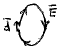 d⃗ E⃗